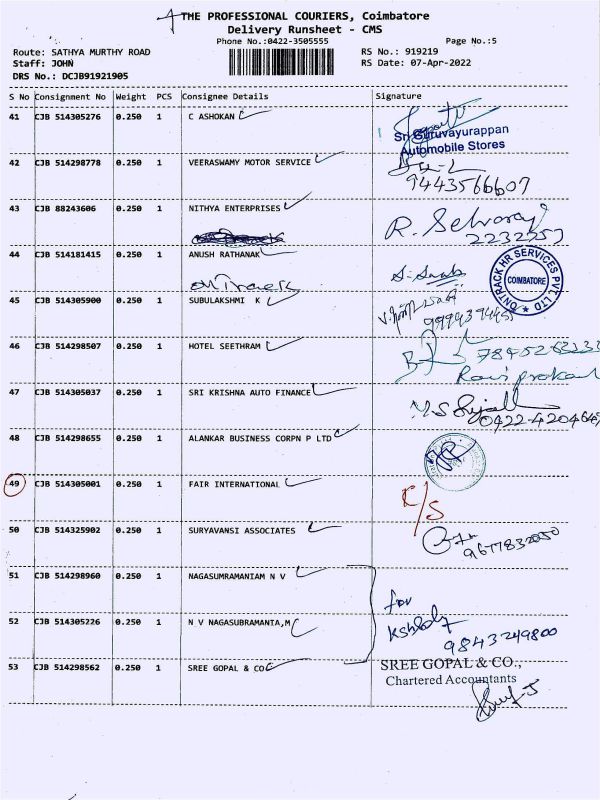 THE PROFESSIONAL COURIERS, Coimbatore
Delivery Runsheet - CMS
Phone No.:0422-3505555
Page No.:5
Route: SATHYA MURTHY ROAD
RS No.: 919219
Staff: JOHN
RS Date: 07-Apr-2022
DRS No.: DCJB91921905
S No Consignment No Weight PCS Consignee Details Signature
41 CJB 514305276 0.250 1 C ASHOKAN
Sri Guruvayurappan
Automobile Stores
42 CJB 514298778 0.250 1 VEERASWAMY MOTOR SERVICE
9443566607
43 CJB 88243606 0.250 1 NITHYA ENTERPRISES
R. Selvaraj
2232257
44 CJB 514181415 0.250 1 ANUSH RATHANAK
ONTRACK HR SERVICES PVT. LTD
COIMBATORE
ONTrack
45 CJB 514305900 0.250 1 SUBULAKSHMI K
46 CJB 514298507 0.250 1 HOTEL SEETHRAM
Raviprakash
47 CJB 514305037 0.250 1 SRI KRISHNA AUTO FINANCE
0422-4204647
48 CJB 514298655 0.250 1 ALANKAR BUSINESS CORPN P LTD
49 CJB 514305001 0.250 1 FAIR INTERNATIONAL
50 CJB 514325902 0.250 1 SURYAVANSI ASSOCIATES
9677832050
51 CJB 514298960 0.250 1 NAGASUMRAMANIAM N V
for
52 CJB 514305226 0.250 1 N V NAGASUBRAMANIA,M
9843249800
53 CJB 514298562 0.250 1 SREE GOPAL & CO
SREE GOPAL & CO.,
Chartered Accountants